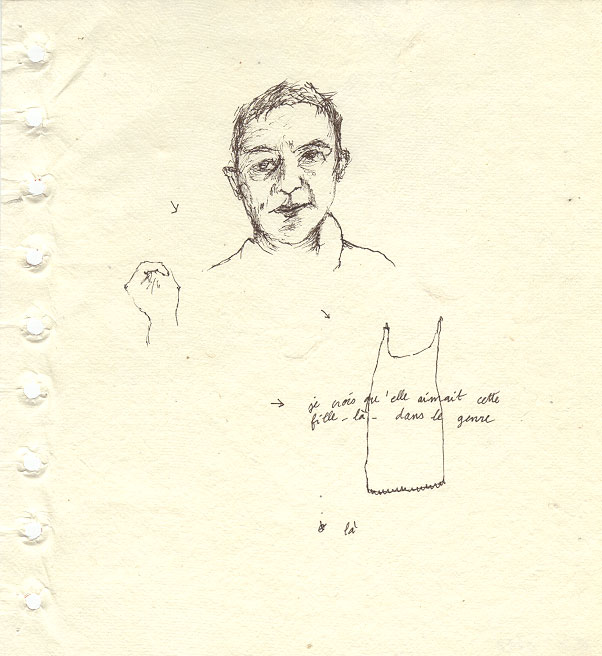 je crois qu'elle aimait cette
fille-là - dans le genre
là